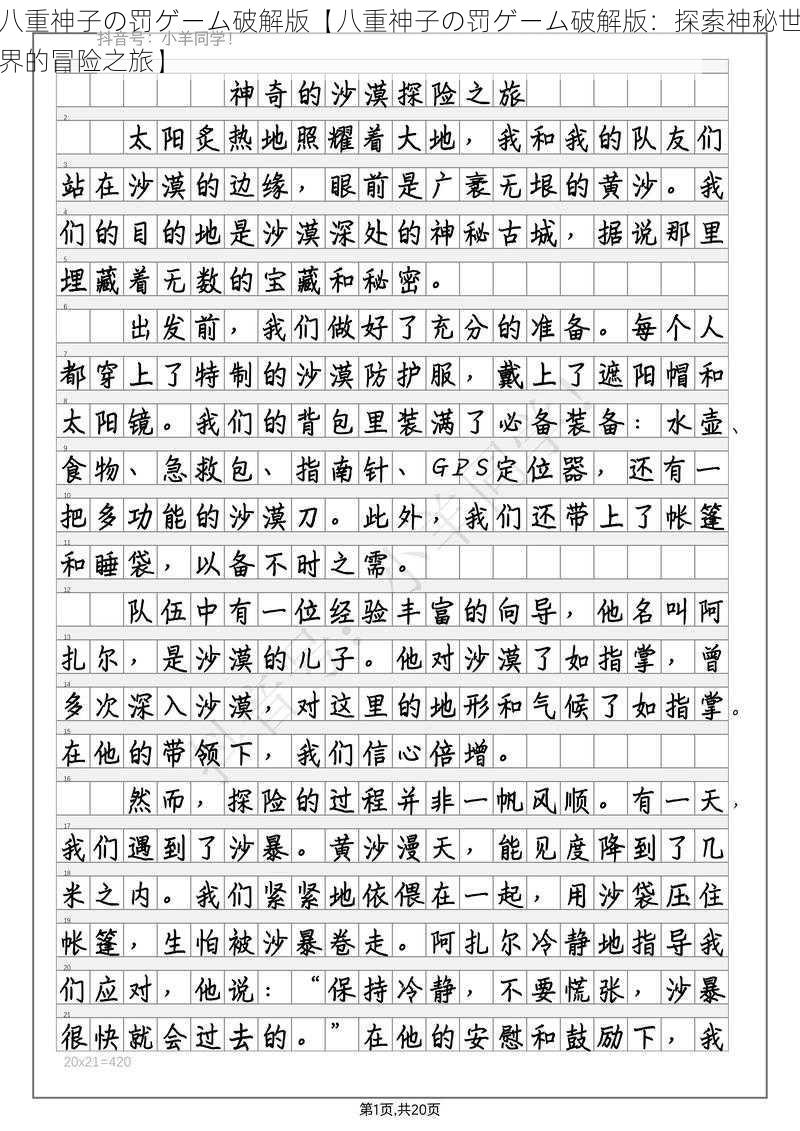 八重神子の罚ゲーム破解版【八重神子の罚ゲーム破解版：探索神秘世
界的冒险之旅】
抖音号：小羊同学！
神奇的沙漠探险之旅
2
太阳炙热地照耀着大地，我和我的队友们
3
站在沙漠的边缘，眼前是广袤无垠的黄沙。我
4
们的目的地是沙漠深处的神秘古城，据说那里
5
埋藏着无数的宝藏和秘密。
6
出发前，我们做好了充分的准备。每个人
7
都穿上了特制的沙漠防护服，戴上了遮阳帽和
8
太阳镜。我们的背包里装满了必备装备：水壶、
9
食物、急救包、指南针、GPS定位器，还有一
10
把多功能的沙漠刀。此外，我们还带上了帐篷
11
和睡袋，以备不时之需。
12
队伍中有一位经验丰富的向导，他名叫阿
13
扎尔，是沙漠的儿子。他对沙漠了如指掌，曾
14
多次深入沙漠，对这里的地形和气候了如指掌。
15
在他的带领下，我们信心倍增。
16
然而，探险的过程并非一帆风顺。有一天，
17
我们遇到了沙暴。黄沙漫天，能见度降到了几
18
米之内。我们紧紧地依偎在一起，用沙袋压住
19
帐篷，生怕被沙暴卷走。阿扎尔冷静地指导我
20
们应对，他说：“保持冷静，不要慌张，沙暴
21
很快就会过去的。”在他的安慰和鼓励下，我
20x21=420
抖音号：小羊同学！
第1页,共20页